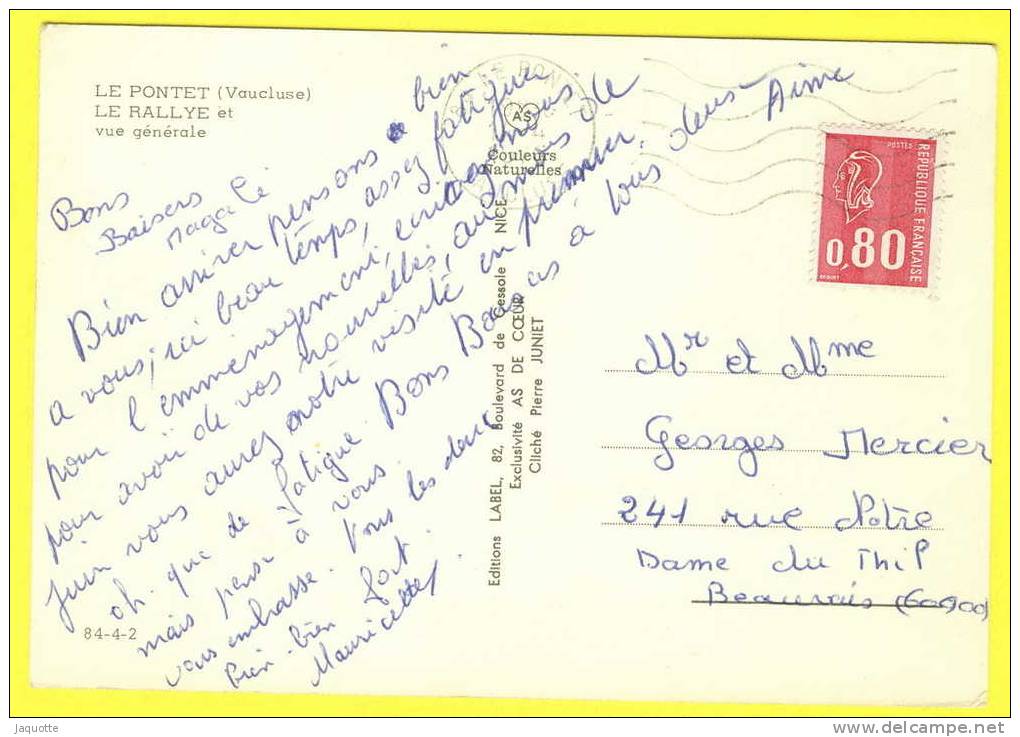 LE PONTET (Vaucluse)
LE RALLYE et
vue générale
Bons
Baisers
Magali
Bien arriver pensons bien
a vous, ici beau temps, assez fatiguer
pour l'emmenagement,
pour avoir de vos nouvelles, au mois de
Juin vous aurez notre visite en premier.
oh. que de fatigue. Bons Baisers a tous deux Aimé
mais pense à vous.
vous embrasse. tous les deux
bien-bien fort.
Mauricette
84-4-2
LE PONTET
AS
Couleurs
Naturelles
Editions LABEL, 82, Boulevard de Gessole NICE
Exclusivité AS DE CŒUR
Cliché Pierre JUNIET
POSTES
RÉPUBLIQUE FRANÇAISE
0,80
BEQUET
Mr et Mme
Georges Mercier
241 rue Notre
Dame du Thil
Beauvais (60000)
Jaquotte
www.delcampe.net